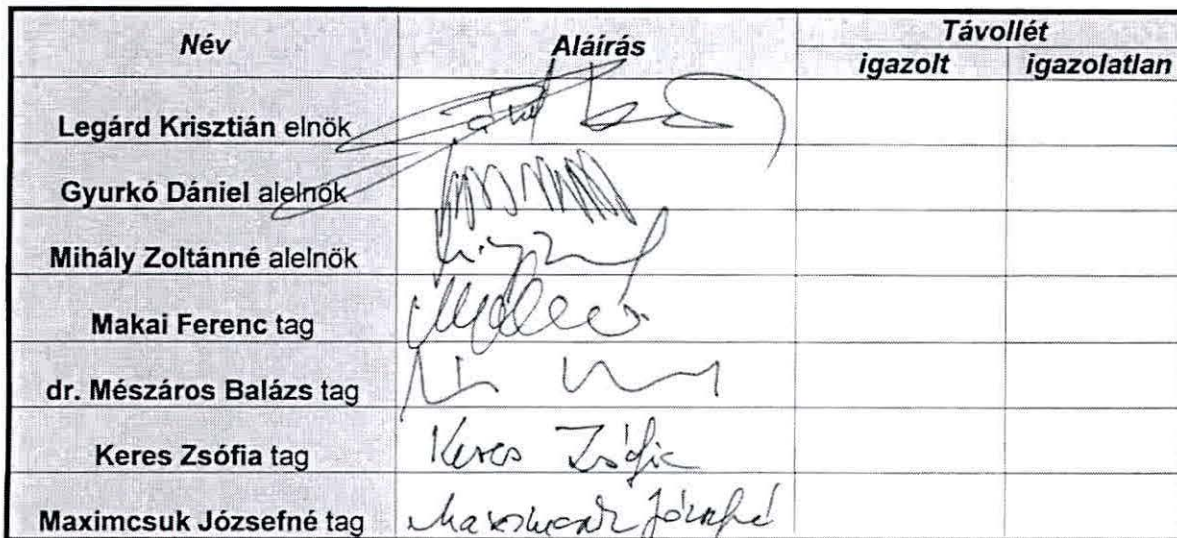 Név Aláírás Távollét
igazolt igazolatlan
Legárd Krisztián elnök
Gyurkó Dániel alelnök
Mihály Zoltánné alelnök
Makai Ferenc tag
dr. Mészáros Balázs tag
Keres Zsófia tag Keres Zsófia
Maximcsuk Józsefné tag Maximcsuk Józsefné